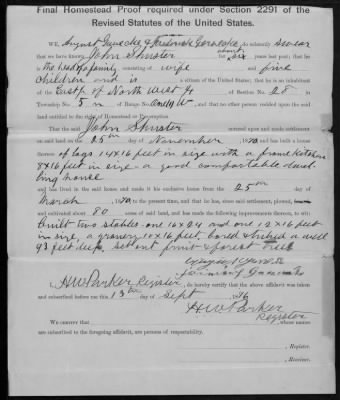 Final Homestead Proof required under Section 2291 of the
Revised Statutes of the United States.
WE, August & Frederick do solemnly swear
that we have known John Shuster for about six years last past; that he
is the head of a family consisting of wife and five
children and is a citizen of the United States; that he is an inhabitant
of the East ½ of North West ¼ of Section No. 28 in
Township No. 5 n of Range No. W, and that no other person resided upon the said
land entitled to the right of Homestead or Pre-emption.
That the said John Shuster entered upon and made settlement
on said land on the 25th day of November, 1870 and has built a house
thereon of logs 14 x 16 feet in size with a frame kitchen
8 x 16 feet in size - a good comfortable dwel
ling house
and has lived in the said house and made it his exclusive home from the 25th day of
March, 1870, to the present time, and that he has, since said settlement, plowed,
and cultivated about 80 acres of said land, and has made the following improvements thereon, to wit:
built two stables - one 16 x 24 and one 12 x 16 feet
in size, a granery 10 x 16 feet, a well
93 feet deep, set out fruit & forest trees
I, H W Parker, Register, do hereby certify that the above affidavit was taken
and subscribed before me this 13th day of Sept 1876
H W Parker
Register
We certify that whose names
are subscribed to the foregoing affidavit, are persons of respectability.
, Register.
, Receiver.